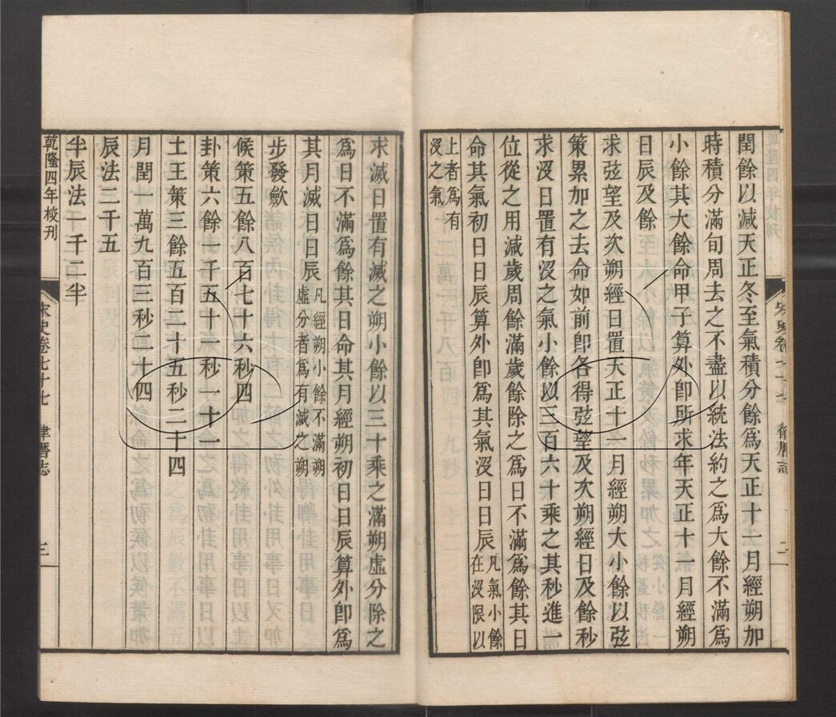 閏餘以減天正冬至氣積分餘爲天正十一月經朔加
時積分滿旬周去之不盡以統法約之爲大餘不滿爲
小餘其大餘命甲子算外卽所求年天正十一月經朔
日辰及餘
求弦望及次朔經日置天正十一月經朔大小餘以弦
策累加之去命如前卽各得弦望及次朔經日及餘秒
求沒日置有沒之氣小餘以三百六十乘之其秒進一
位從之用減歲周餘滿歲餘除之爲日不滿爲餘其日
命其氣初日日辰算外卽爲其氣沒日日辰凡氣小餘在沒限以
上者爲有沒之氣
求滅日置有滅之朔小餘以三十乘之滿朔虛分除之
爲日不滿爲餘其日命其月經朔初日日辰算外卽爲
其月滅日日辰凡經朔小餘不滿朔虛分者爲有滅之朔
步發斂
候策五餘八百七十六秒四
卦策六餘一千五十一秒一十二
土王策三餘五百二十五秒二十四
月閏一萬九百三秒二十四
辰法二千五
半辰法一千二半
乾隆四年校刊
宋史卷七十七
律曆志
三